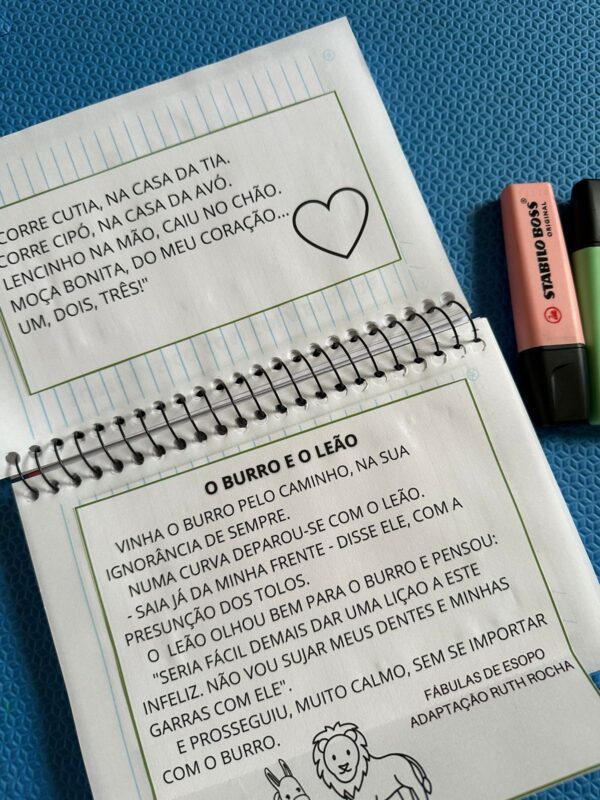 CORRE CUTIA, NA CASA DA TIA.
CORRE CIPÓ, NA CASA DA AVÓ.
LENCINHO NA MÃO, CAIU NO CHÃO.
MOÇA BONITA, DO MEU CORAÇÃO...
UM, DOIS, TRÊS!"
STABILO BOSS
ORIGINAL
O BURRO E O LEÃO
VINHA O BURRO PELO CAMINHO, NA SUA
IGNORÂNCIA DE SEMPRE.
NUMA CURVA DEPAROU-SE COM O LEÃO.
- SAIA JÁ DA MINHA FRENTE - DISSE ELE, COM A
PRESUNÇÃO DOS TOLOS.
O LEÃO OLHOU BEM PARA O BURRO E PENSOU:
"SERIA FÁCIL DEMAIS DAR UMA LIÇAO A ESTE
INFELIZ. NÃO VOU SUJAR MEUS DENTES E MINHAS
GARRAS COM ELE".
E PROSSEGUIU, MUITO CALMO, SEM SE IMPORTAR
COM O BURRO.
FÁBULAS DE ESOPO
ADAPTAÇÃO RUTH ROCHA